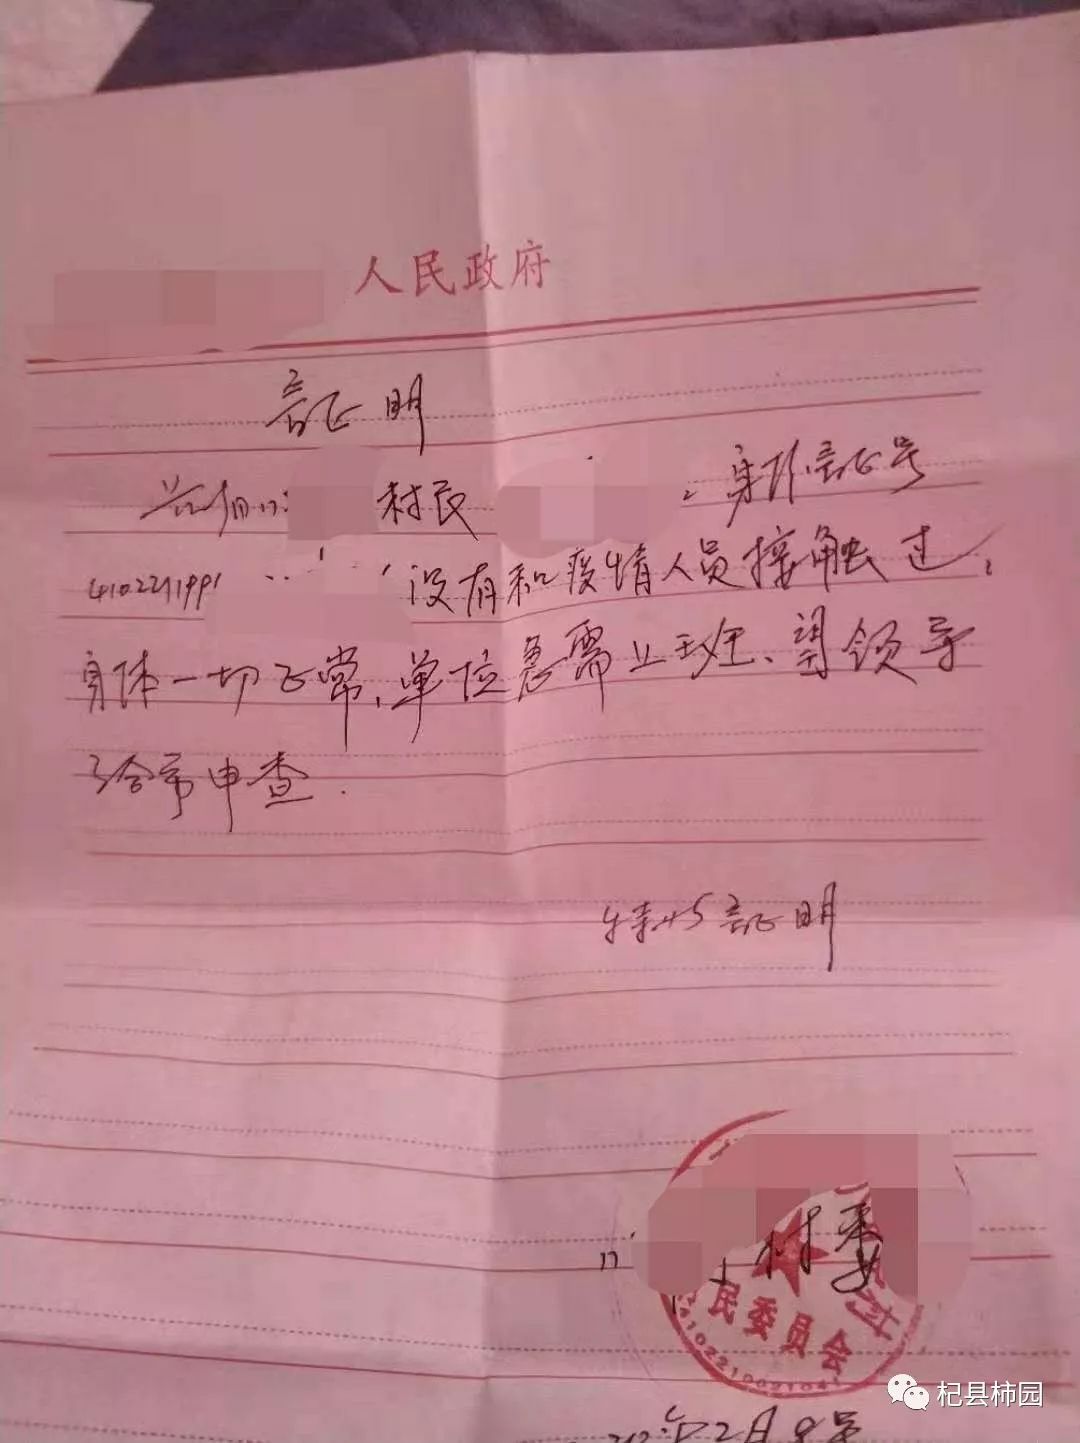 人民政府
证明
兹有 村民 身份证号
4102211991 没有和疫情人员接触过,
身体一切正常,单位急需上班、望领导
给予审查.
特此证明
村委
民委员会
4102210021041
年2月9号
杞县柿园